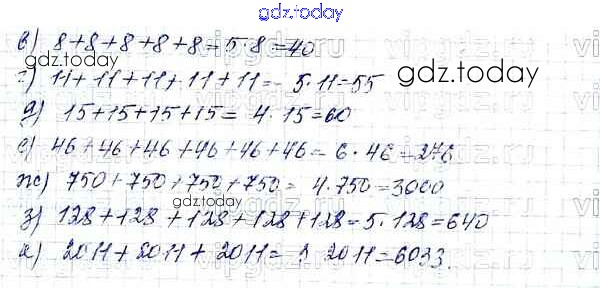 gdz.today
в) 8+8+8+8+8=5·8=40
г) 11+11+11+11+11=5·11=55
gdz.today
д) 15+15+15+15= 4·15=60
е) 46+46+46+46+46+46= 6·46=276
ж) 750+750+750+750= 4·750=3000
з) 128+128+128+128+128=5·128=640
и) 2011+2011+2011= 3·2011=6033.
gdz.today